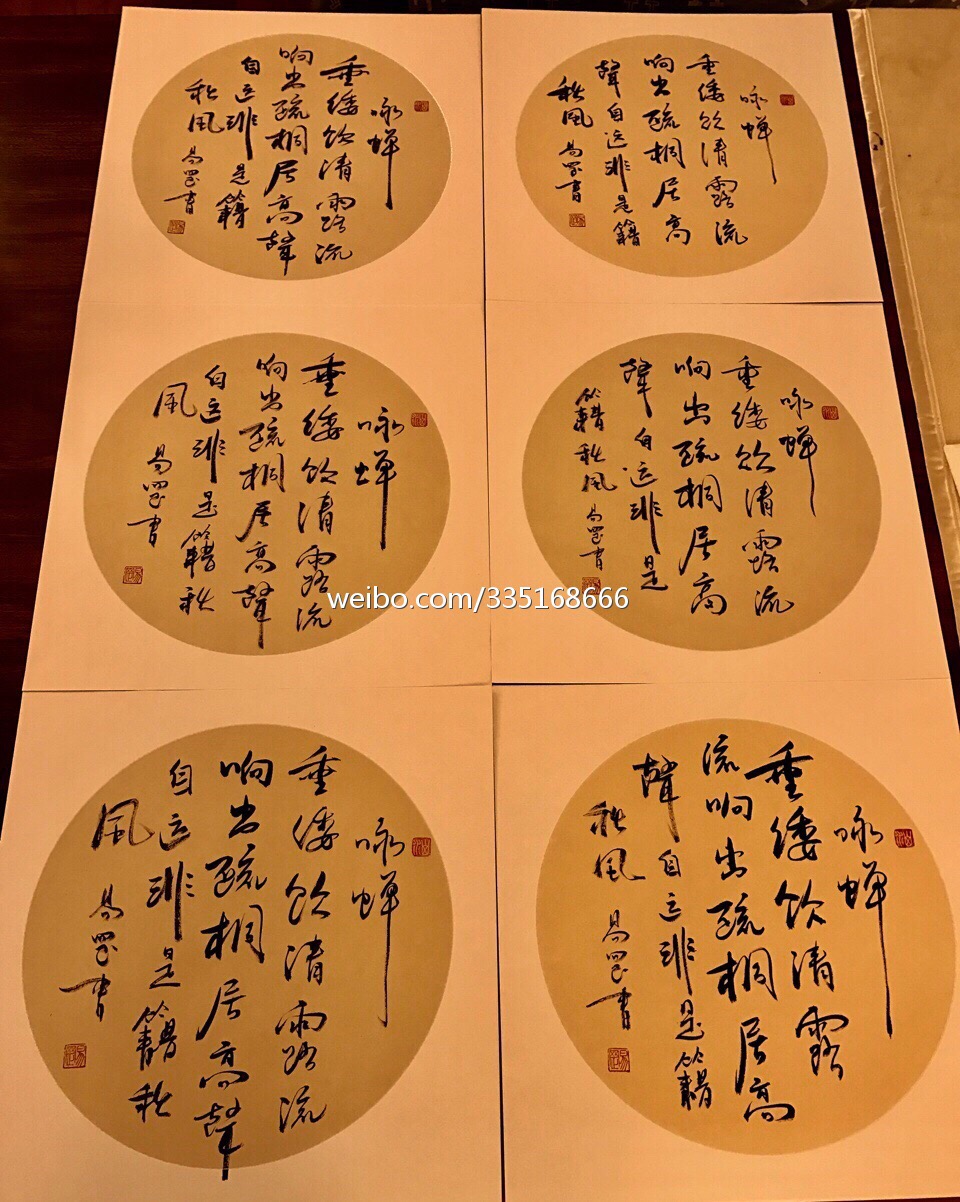 咏蝉
垂緌饮清露流
响出疏桐居高聲
自远非是籍
秋風
易罡書
咏蝉
垂緌饮清露流
响出疏桐居高
聲自远非是籍
秋風
易罡書
咏蝉
垂緌饮清露流
响出疏桐居高聲
自远非是籍秋
風
易罡書
咏蝉
垂緌饮清露流
响出疏桐居高
聲自远非是
籍秋風
易罡書
weibo.com/335168666
咏蝉
垂緌饮清露流
响出疏桐居高聲
自远非是籍秋
風
易罡書
咏蝉
垂緌饮清露
流响出疏桐居高
聲自远非是籍
秋風
易罡書